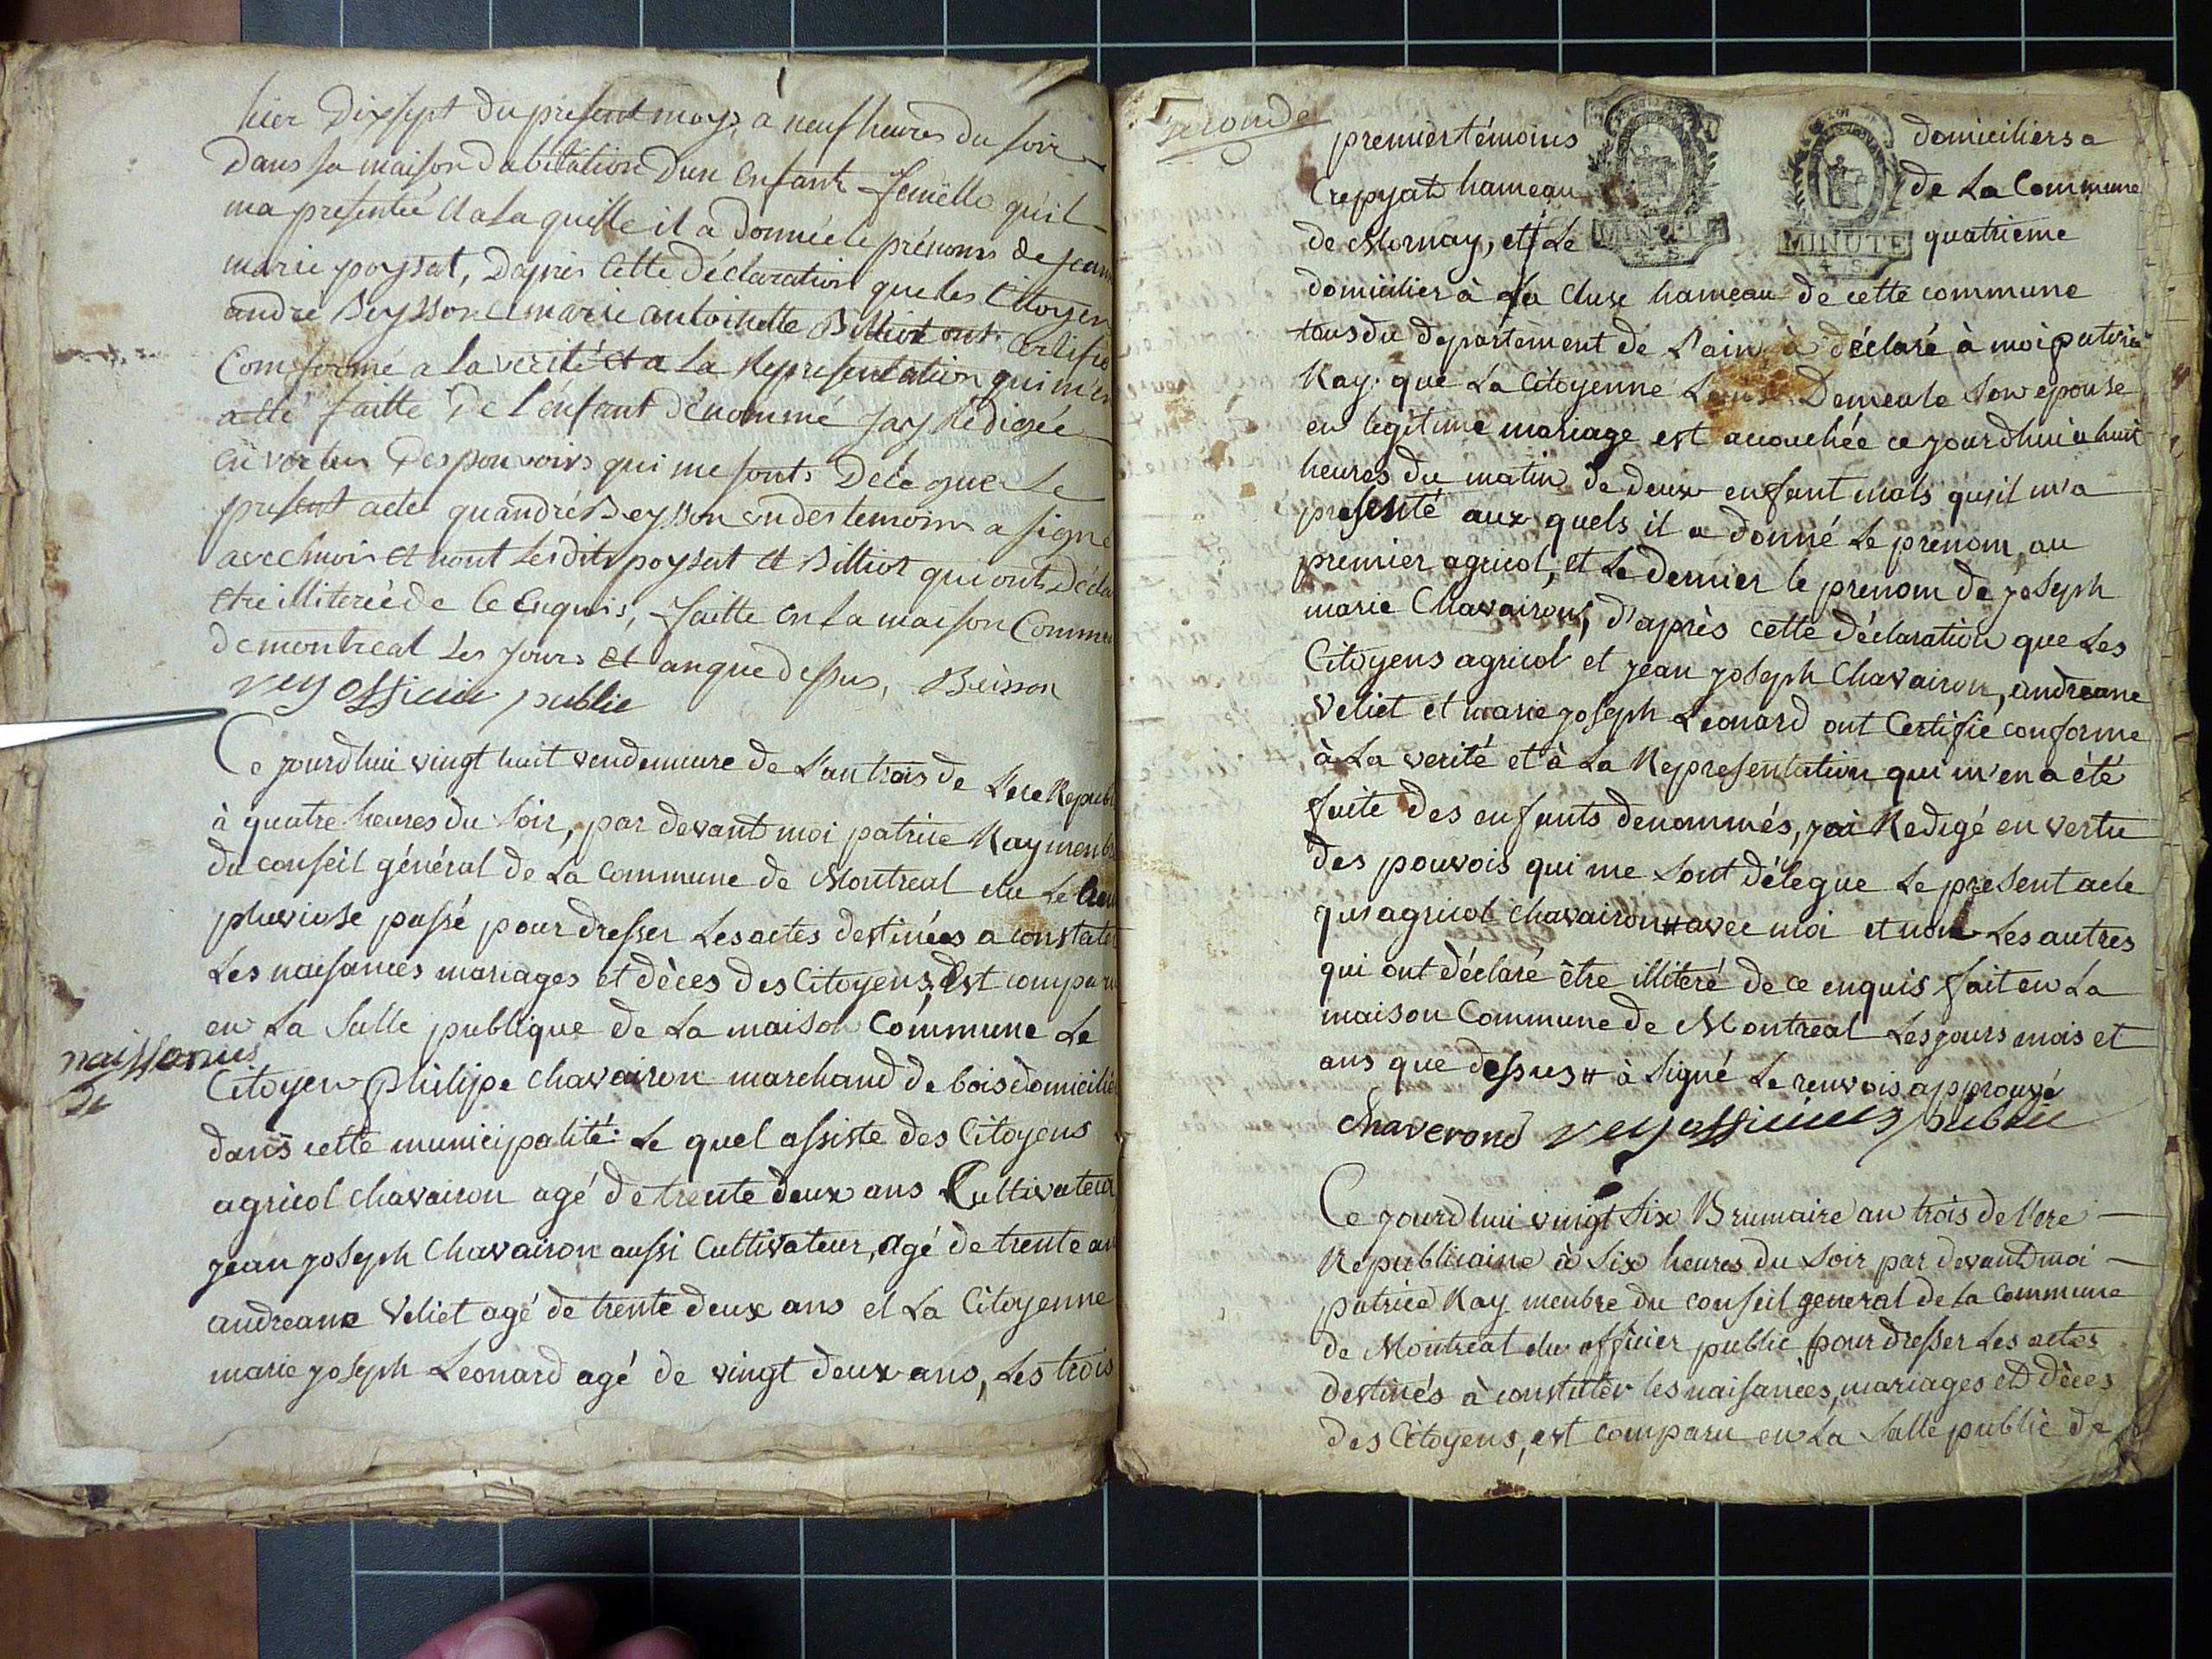 hier dixsept du present moys a neuf heures du soir
dans sa maison dabitation dun enfant femelle qu'il
ma presenteé et a la quelle il a donneé le prénoms de jean
marie poysat, dapres cette déclaration que les Citoyen
andré Beysson et marie antoinette Billiot ont certifié
Comforme a la verité et a la Representation qui m'en
a été faitte de l'énfant dénommé jay Rédigée
en vertus des pouvoirs qui me sonts delegué Le
present acte qu'andré Beysson un des temoins a signé
avec moi et nont les dits poysat et Billiot qui ont décla
etre illitereé de ce enquis, faitte en la maison Commu
de montreal Les jours et an que dessus, Buisson
rey officier public
Ce jourdhui vingt huit vendemiere de l'an trois de l'ere Republ
à quatre heures du soir, par devant moi patrice Ray menbr
du conseil général de La Commune de Montreal elu Le
pluviose passé pour dresser Les actes destinées a constater
Les naisances mariages et dèces des Citoyens, Est comparu
en La Salle publique de La maison Commune Le
naissances
de
Citoyen philipe chavairon marchand de bois domicilié
dans cette municipalité: Le quel assiste des Citoyens
agricol chavairon agé de trente deux ans Cultivateur
jean joseph Chavairon aussi Cultivateur, agé de trente an
andreane Veliet agé de trente deux ans et La Citoyenne
marie joseph Leonard agé de vingt deux ans, Les trois
Seconde
premier témoins domiciliers a
Crepyat hameau de La Commune
de Mornay, et Le quatrieme
MINUTE MINUTE
4 S. 4 S.
domicilier à La Cluse hameau de cette commune
tous du département de L'ain à déclaré à moi patrice
Ray: que La Citoyenne Demeule Son epouse
en légitime mariage est acouchée ce jourdhui a huit
heures du matin de deux enfant mals qu'il m'a
presenté aux quels il a donné Le prenom au
premier agricol, et Le dernier le prenom de joseph
marie Chavairons, d'après cette déclaration que Les
Citoyens agricol et jean joseph Chavairon, andreane
Veliet et marie joseph Leonard ont Certifié conforme
à La verité et à La Representation qui m'en a été
faite des enfants denommés, j'ai Redigé en vertu
des pouvois qui me sont délegue Le present acte
qu'agricol Chavairon # avec moi et non Les autres
qui ont déclaré être illiteré de ce enquis fait en La
maison Commune de Montreal Les jours mois et
ans que dessus # à Signé Le renvois approuvé
chaverond rey officier public
Ce jourdhui vingt Six Brumaire an trois de l'ere
Republicaine à Six heures du Soir par devant moi
patrice Ray menbre du conseil general de la Commune
de Montreal elu officier public pour dresser Les actes
destinés à constater les naisances, mariages et dèces
des Citoyens, est comparu en La Salle public de